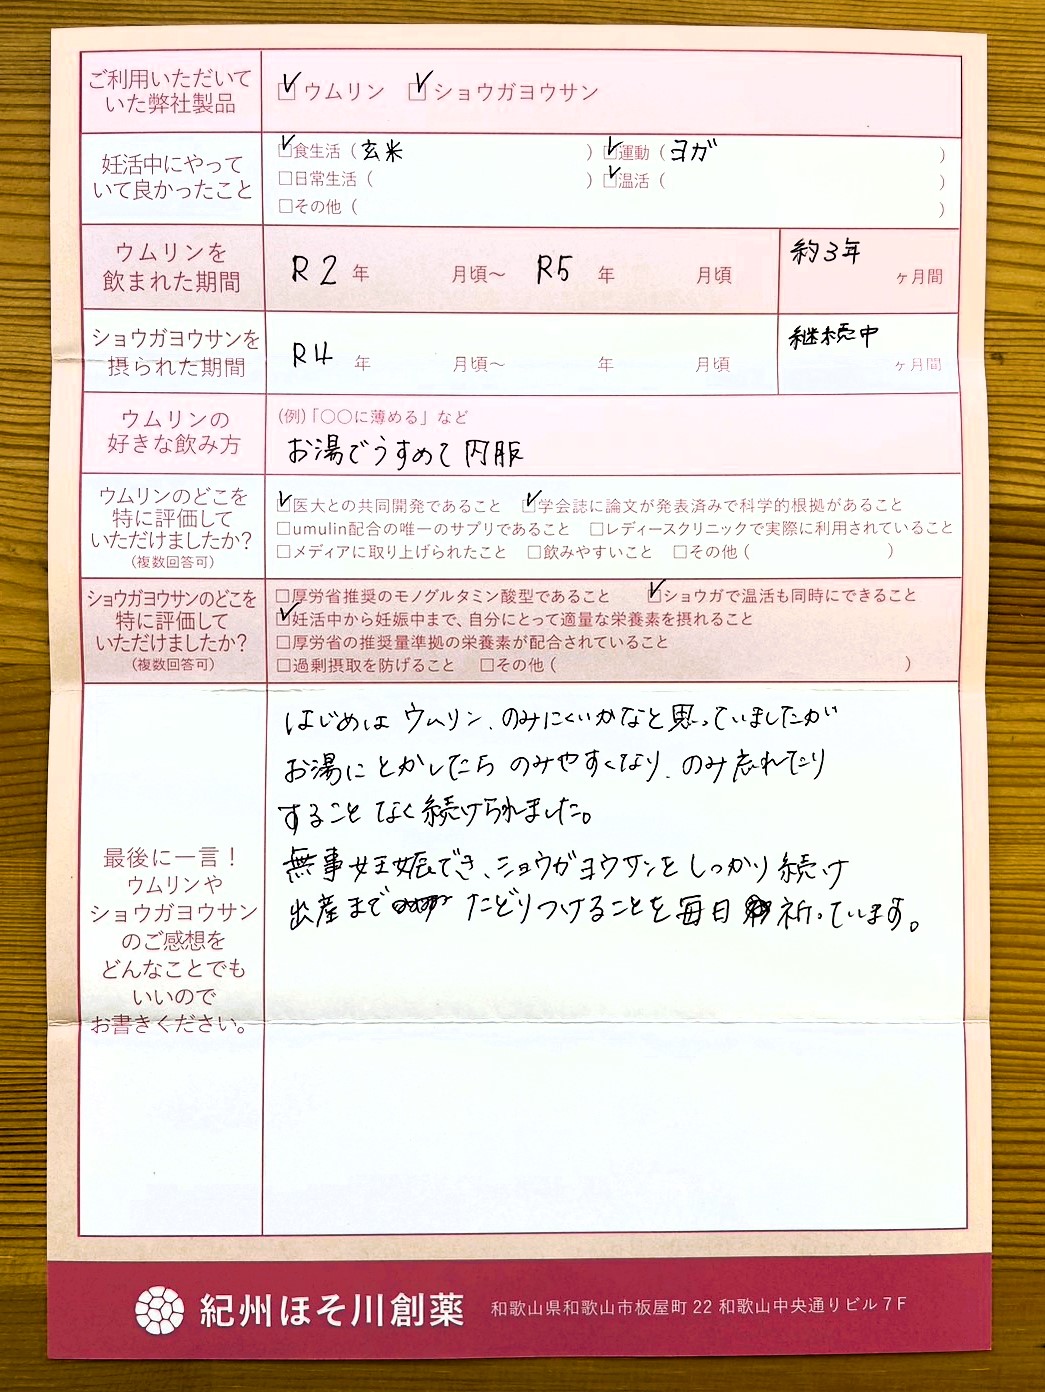 ご利用いただいて
いた弊社製品
☑ウムリン ☑ショウガヨウサン
妊活中にやって
いて良かったこと
☑食生活（玄米）☑運動（ヨガ）
□日常生活（）☑温活（）
□その他（）
ウムリンを
飲まれた期間
R2年 月頃〜 R5年 月頃
約3年
ヶ月間
ショウガヨウサンを
摂られた期間
R4年 月頃〜 年 月頃
継続中
ヶ月間
ウムリンの
好きな飲み方
(例)「〇〇に薄める」など
お湯でうすめて内服
ウムリンのどこを
特に評価して
いただけましたか？
(複数回答可)
☑医大との共同開発であること ☑学会誌に論文が発表済みで科学的根拠があること
□umulin配合の唯一のサプリであること □レディースクリニックで実際に利用されていること
□メディアに取り上げられたこと □飲みやすいこと □その他（）
ショウガヨウサンのどこを
特に評価して
いただけましたか？
(複数回答可)
□厚労省推奨のモノグルタミン酸型であること ☑ショウガで温活も同時にできること
☑妊活中から妊娠中まで、自分にとって適量な栄養素を摂れること
□厚労省の推奨量準拠の栄養素が配合されていること
□過剰摂取を防げること □その他（）
最後に一言！
ウムリンや
ショウガヨウサン
のご感想を
どんなことでも
いいので
お書きください。
はじめは ウムリン、のみにくいかなと思っていましたが
お湯に とかしたら のみやすくなり、のみ忘れたり
すること なく続けられました。
無事妊娠でき、ショウガヨウサンをしっかり続け
出産まで たどりつけることを毎日 祈っています。
紀州ほそ川創薬 和歌山県和歌山市板屋町 22 和歌山中央通りビル 7F